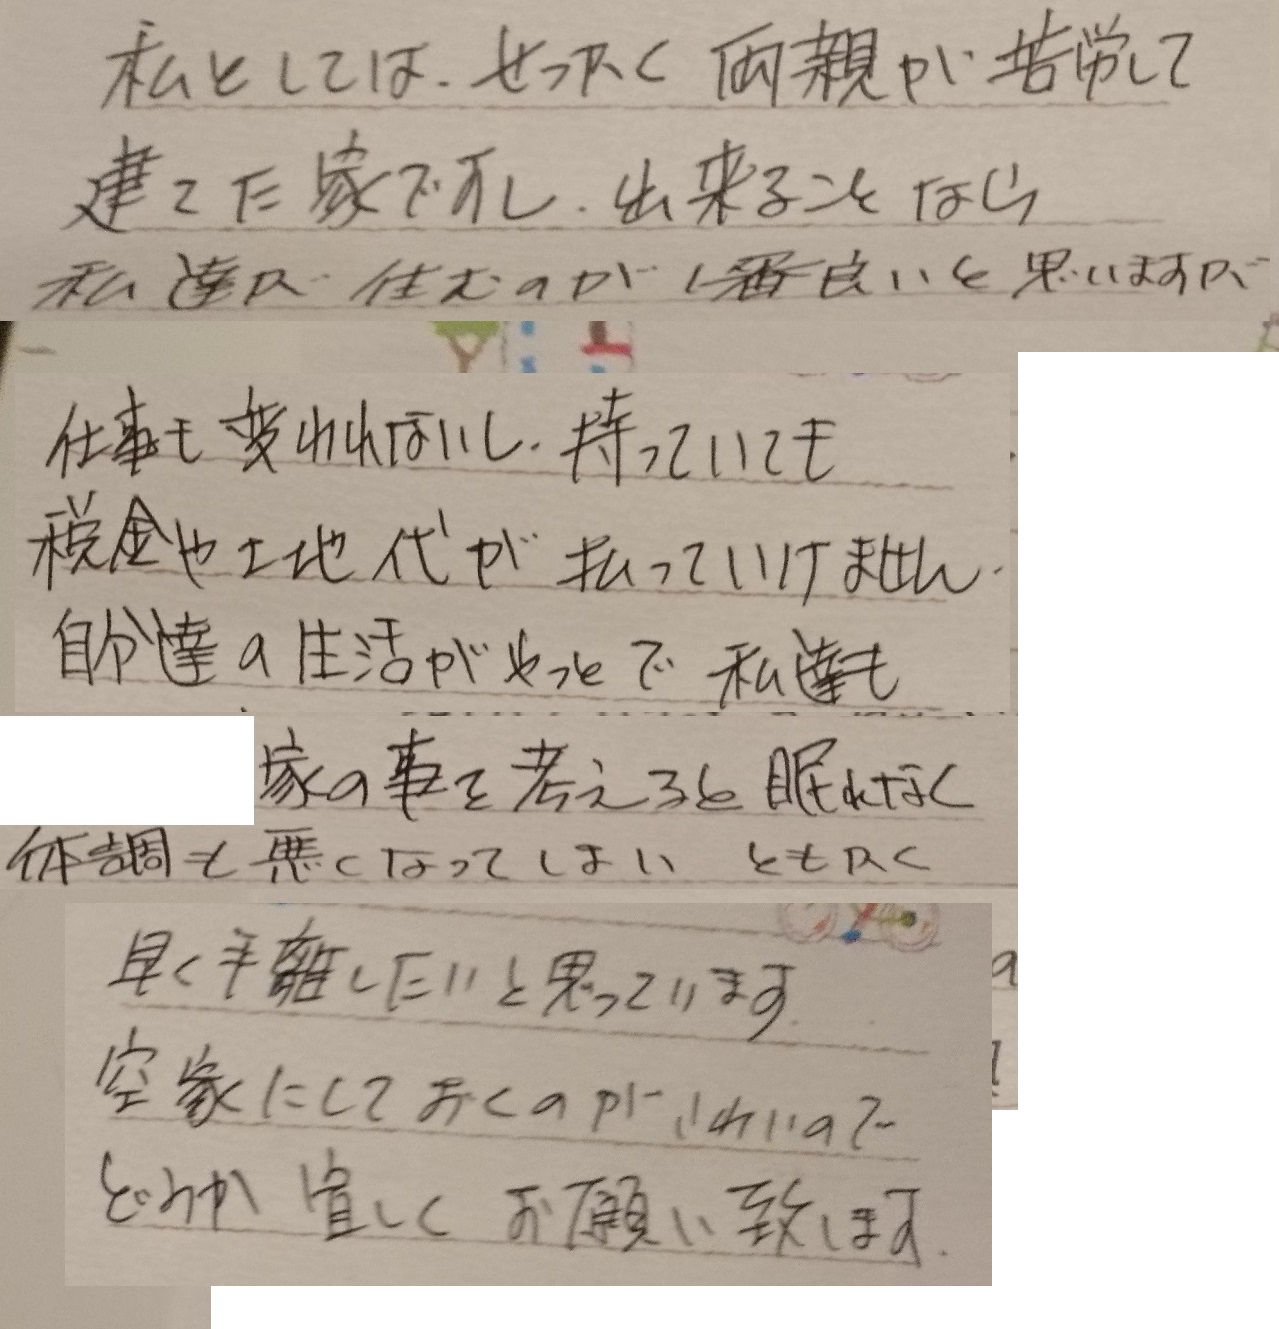 私としては、せっかく両親が苦労して
建てた家ですし、出来ることなら
私達が住むのが1番良いと思いますが
仕事も変われないし、持っていても
税金や土地代が払っていけません。
自分達の生活がやっとで私達も
家の事を考えると眠れなく
体調も悪くなってしまい ともかく
早く手離したいと思っています。
空家にしておくのがこわいので
どうか宜しくお願い致します。